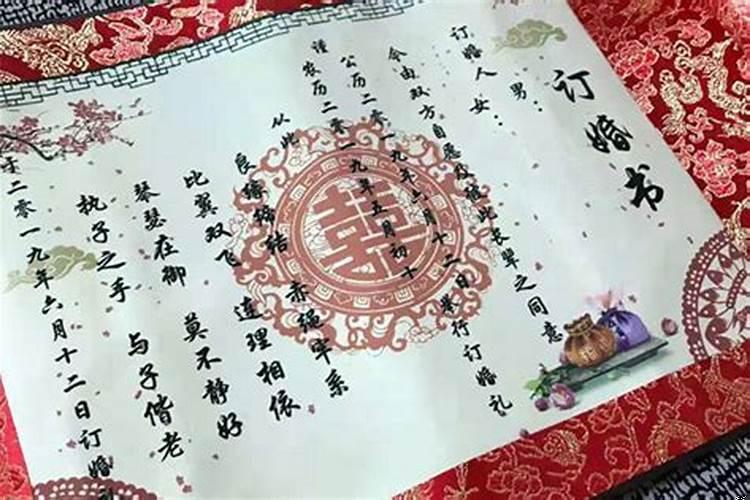 订婚书
订婚人 男：
女：
今由双方自愿及彼此长辈之同意
谨 公历二零一九年六月十二日举行订婚礼
农历二零一九年五月初十
从此 赤绳牢系
良缘缔结 连理相依
比翼双飞 莫不静好
琴瑟在御 与子偕老
执子之手
于二零一九年六月十二日订婚